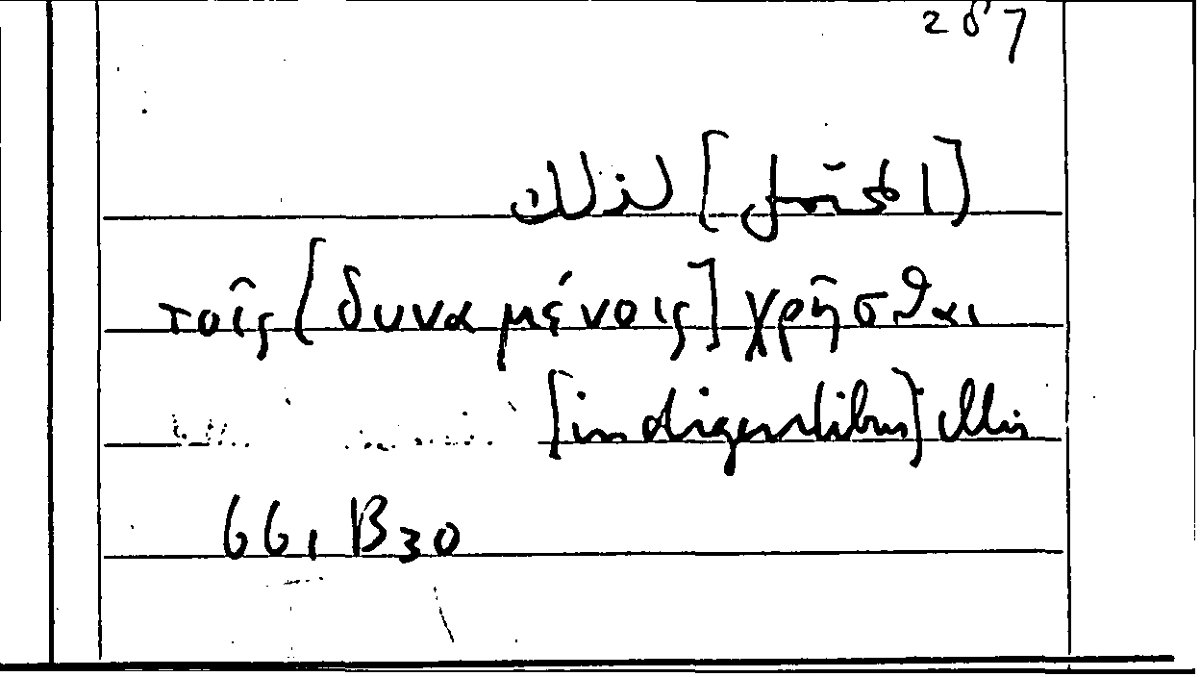 287
[المحتاج] لذلك
τοῖς [δυναμένοις] χρῆσθαι
[indigentibus] illis
661 B30